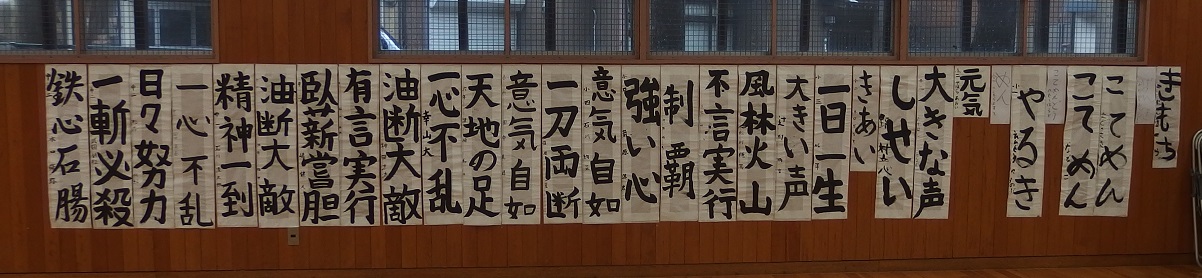 きもち
こてめん
こてめん
やるき
元気
大きな声
しせい
きあい
一日一生
大きい声
風林火山
不言実行
制覇
強い心
意気自如
一刀両断
意気自如
天地の足
一心不乱
油断大敵
有言実行
臥薪嘗胆
油断大敵
精神一到
一心不乱
日々努力
一斬必殺
鉄心石腸